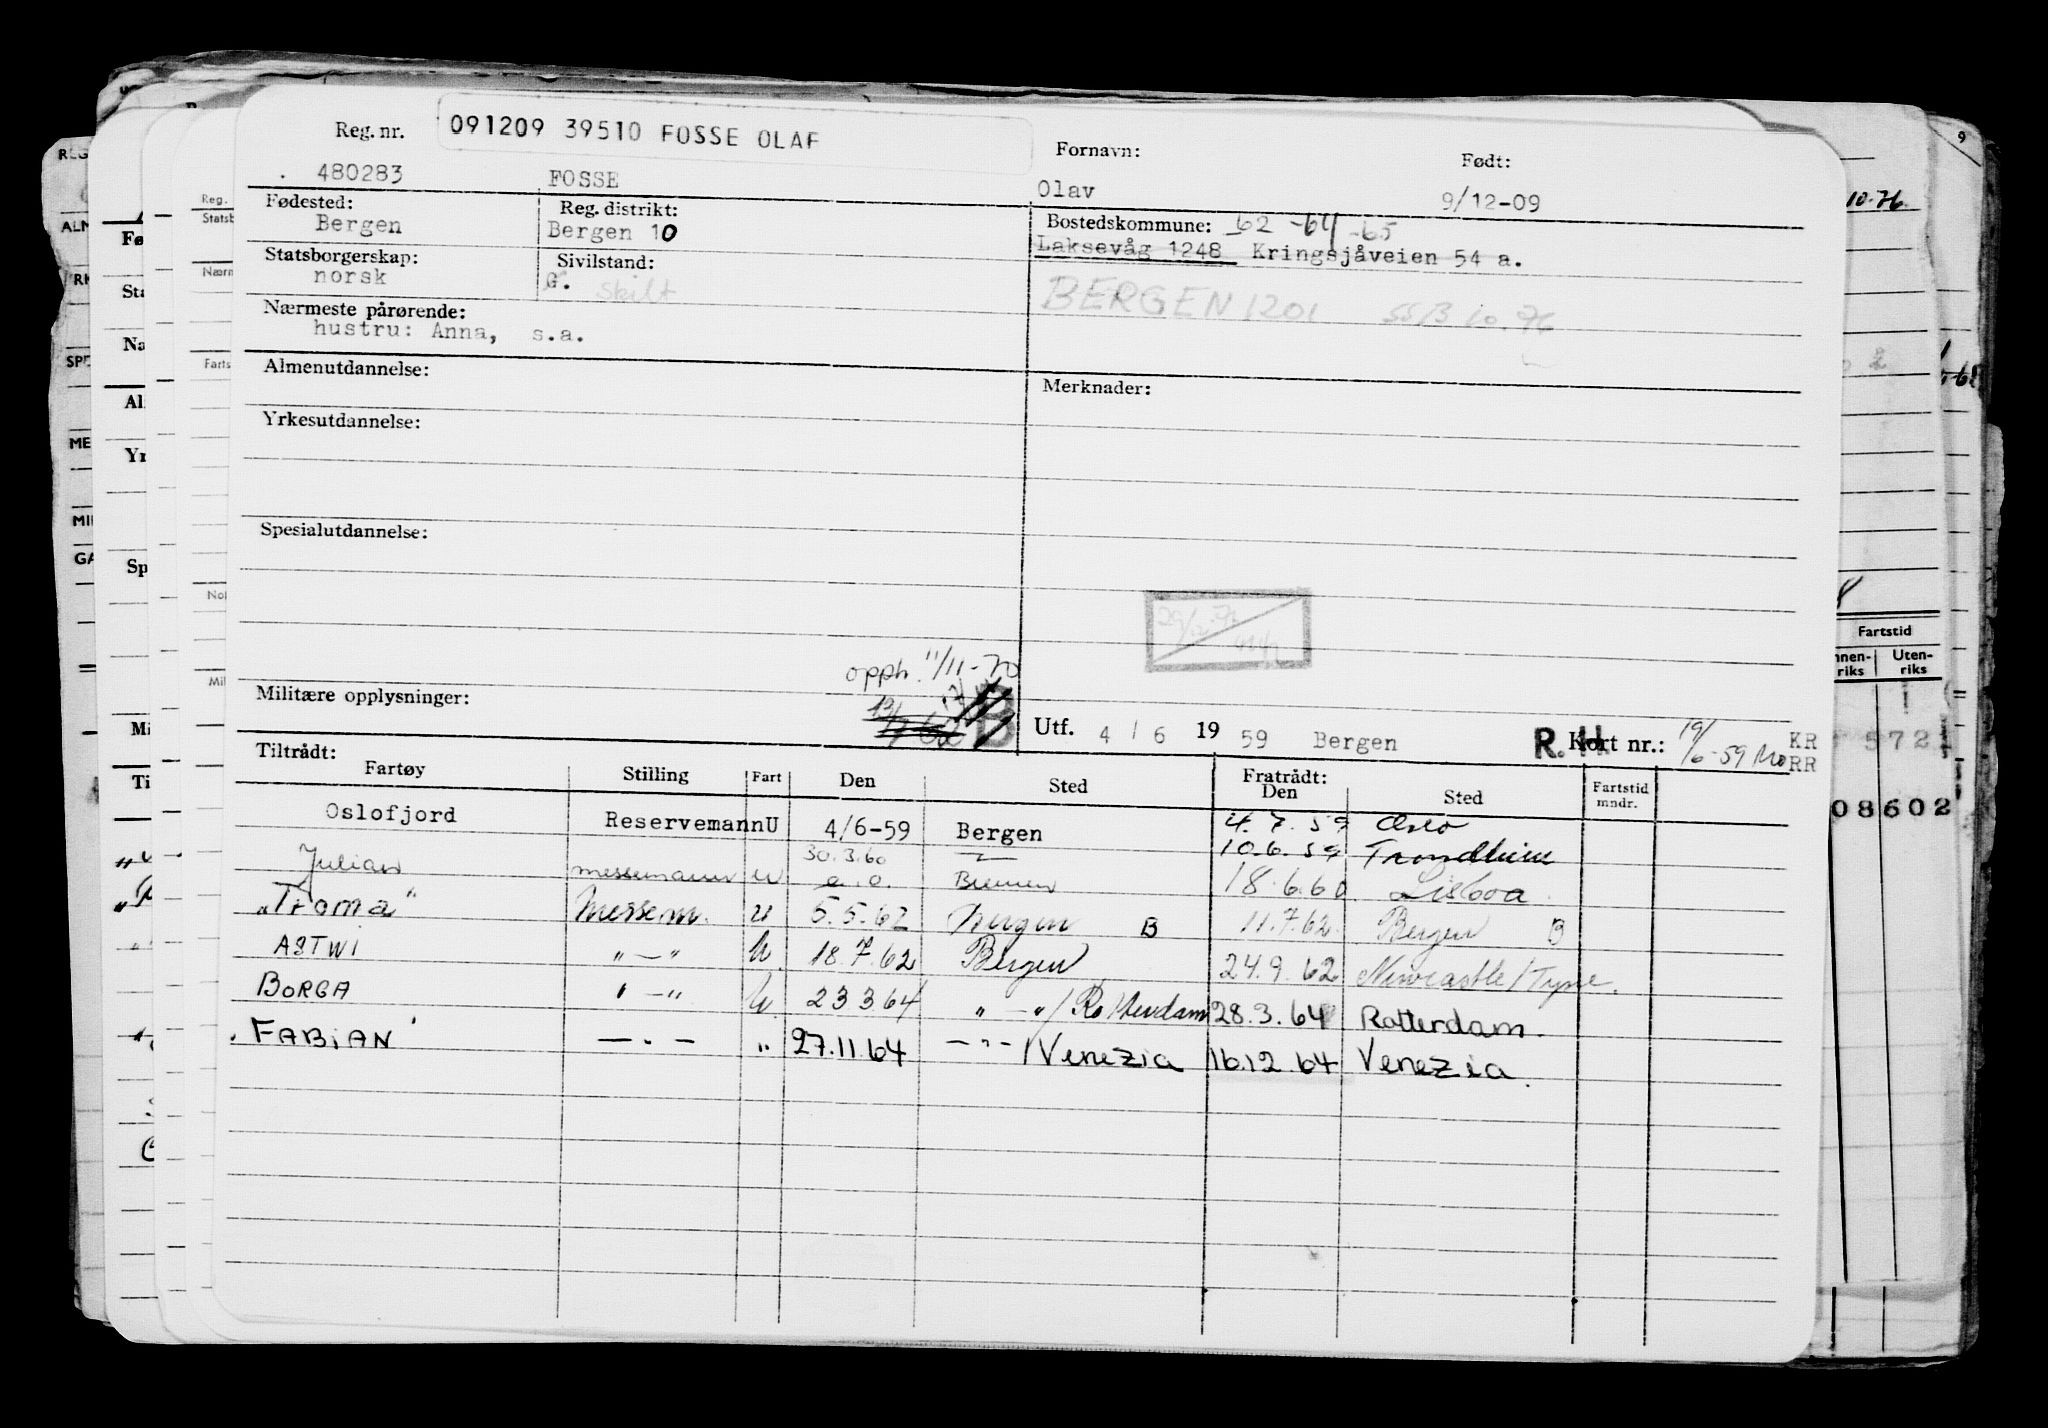 Reg. nr. 091209 39510 FOSSE OLAF Fornavn: Født:
480283 FOSSE Olav 9/12-09
Fødested: Reg. distrikt: Bostedskommune: 62 -64 -65
Bergen Bergen 10 Laksevåg 1248 Kringsjåveien 54 a.
Statsborgerskap: Sivilstand:
norsk G. skilt BERGEN 1201 10.76
Nærmeste pårørende:
hustru: Anna, s.a.
Almenutdannelse: Merknader:
Yrkesutdannelse:
Spesialutdannelse:
opph. 11/11-70
Militære opplysninger: B Utf. 4 / 6 19 59 Bergen R.H. Kort nr.: 19/6-59 KR
RR
Tiltrådt: Fratrådt:
Fartøy Stilling Fart Den Sted Den Sted Fartstid mndr.
Oslofjord Reservemann U 4/6-59 Bergen 4.7.59 Oslo
30.3.60 10.6.59 Trondheim
Julian messemann u a.o. Bremen 18.6.60 Lisboa.
"Troma" Messem. u 5.5.62 Bergen B 11.7.62. Bergen B
ASTWI " — " U. 18.7.62 Bergen 24.9.62 Newcastle/Tyne.
BORGA " — " U. 23.3.64 " — " / Rotterdam 28.3.64 Rotterdam.
"FABIAN" — " — " 27.11.64 — " — / Venezia 16.12.64 Venezia.
10.76.
Fartstid
Innen-riks Uten-riks
572
08602